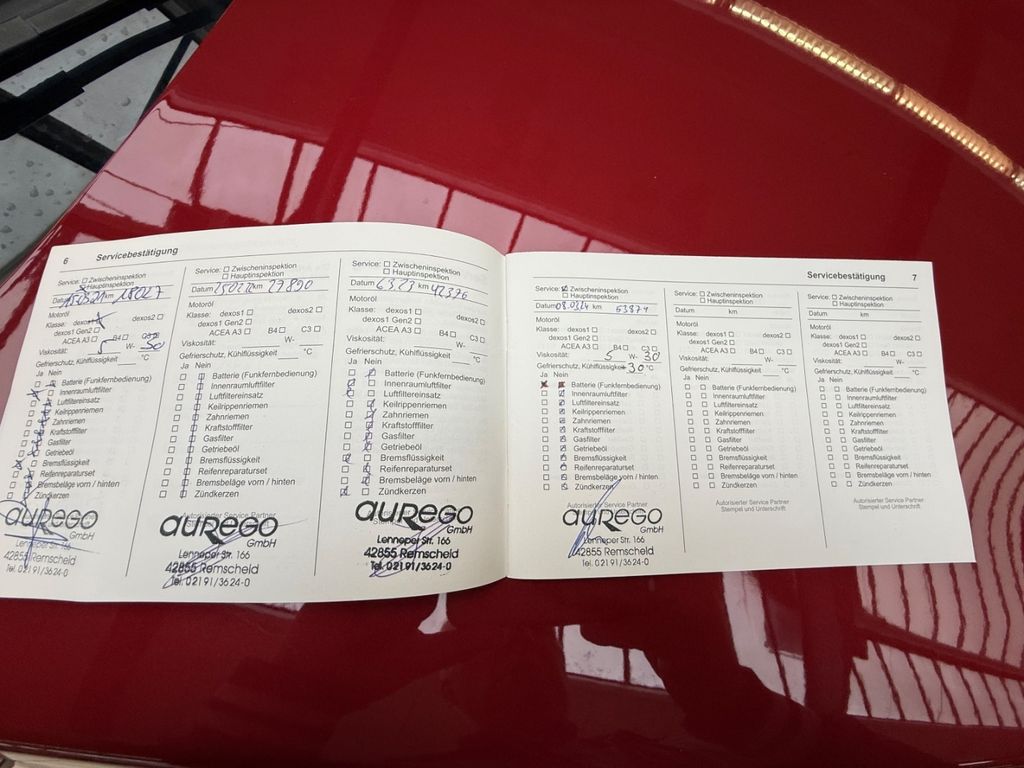 6 Servicebestätigung
Service: Zwischeninspektion
Hauptinspektion
Datum km 18027
Motoröl
Klasse: dexos1 dexos2
dexos1 Gen2
ACEA A3 B4 C3
Viskosität: 5 W- 30
Gefrierschutz, Kühlflüssigkeit °C
Ja Nein
Batterie (Funkfernbedienung)
Innenraumluftfilter
Luftfiltereinsatz
Keilrippenriemen
Zahnriemen
Kraftstofffilter
Gasfilter
Getriebeöl
Bremsflüssigkeit
Reifenreparaturset
Bremsbeläge vorn / hinten
Zündkerzen
auREGO
GmbH
Lenneper Str. 166
42855 Remscheid
Tel. 02191/3624-0
Service: Zwischeninspektion
Hauptinspektion
Datum 250222 km 27890
Motoröl
Klasse: dexos1 dexos2
dexos1 Gen2
ACEA A3 B4 C3
Viskosität: W-
Gefrierschutz, Kühlflüssigkeit °C
Ja Nein
Batterie (Funkfernbedienung)
Innenraumluftfilter
Luftfiltereinsatz
Keilrippenriemen
Zahnriemen
Kraftstofffilter
Gasfilter
Getriebeöl
Bremsflüssigkeit
Reifenreparaturset
Bremsbeläge vorn / hinten
Zündkerzen
Autorisierter Service Partner
auREGO
GmbH
Lenneper Str. 166
42855 Remscheid
Tel. 02191/3624-0
Service: Zwischeninspektion
Hauptinspektion
Datum 6.3.23 km 42376
Motoröl
Klasse: dexos1 dexos2
dexos1 Gen2
ACEA A3 B4 C3
Viskosität: W-
Gefrierschutz, Kühlflüssigkeit °C
Ja Nein
Batterie (Funkfernbedienung)
Innenraumluftfilter
Luftfiltereinsatz
Keilrippenriemen
Zahnriemen
Kraftstofffilter
Gasfilter
Getriebeöl
Bremsflüssigkeit
Reifenreparaturset
Bremsbeläge vorn / hinten
Zündkerzen
auREGO
GmbH
Lenneper Str. 166
42855 Remscheid
Tel. 02191/3624-0
Servicebestätigung 7
Service: Zwischeninspektion
Hauptinspektion
Datum 08.03.24 km 53874
Motoröl
Klasse: dexos1 dexos2
dexos1 Gen2
ACEA A3 B4 C3
Viskosität: 5 W- 30
Gefrierschutz, Kühlflüssigkeit -30 °C
Ja Nein
Batterie (Funkfernbedienung)
Innenraumluftfilter
Luftfiltereinsatz
Keilrippenriemen
Zahnriemen
Kraftstofffilter
Gasfilter
Getriebeöl
Bremsflüssigkeit
Reifenreparaturset
Bremsbeläge vorn / hinten
Zündkerzen
Autorisierter Service Partner
auREGO
GmbH
Lenneper Str. 166
42855 Remscheid
Tel. 02191/3624-0
Service: Zwischeninspektion
Hauptinspektion
Datum km
Motoröl
Klasse: dexos1 dexos2
dexos1 Gen2
ACEA A3 B4 C3
Viskosität: W-
Gefrierschutz, Kühlflüssigkeit °C
Ja Nein
Batterie (Funkfernbedienung)
Innenraumluftfilter
Luftfiltereinsatz
Keilrippenriemen
Zahnriemen
Kraftstofffilter
Gasfilter
Getriebeöl
Bremsflüssigkeit
Reifenreparaturset
Bremsbeläge vorn / hinten
Zündkerzen
Autorisierter Service Partner
Stempel und Unterschrift
Service: Zwischeninspektion
Hauptinspektion
Datum km
Motoröl
Klasse: dexos1 dexos2
dexos1 Gen2
ACEA A3 B4 C3
Viskosität: W-
Gefrierschutz, Kühlflüssigkeit °C
Ja Nein
Batterie (Funkfernbedienung)
Innenraumluftfilter
Luftfiltereinsatz
Keilrippenriemen
Zahnriemen
Kraftstofffilter
Gasfilter
Getriebeöl
Bremsflüssigkeit
Reifenreparaturset
Bremsbeläge vorn / hinten
Zündkerzen
Autorisierter Service Partner
Stempel und Unterschrift